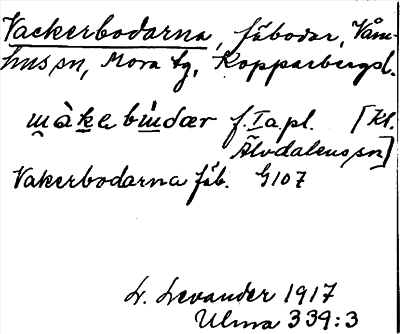 Vackerbodarna, fäbodar, Våm-
hus sn, Mora tg, Kopparbergs l.
wàkebúdær f. Ia pl. [Kl.
Älvdalens sn]
Vakerbodarna fäb. G107
L. Levander 1917
Ulma 339:3